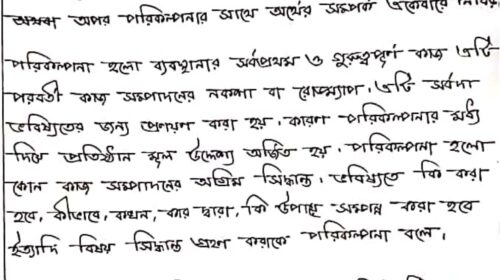 অথবা অপর পরিকল্পনার সাথে অর্থের সম্পর্ক একেবারে নিবিড়
পরিকল্পনা হলো ব্যবস্থাপনার সর্বপ্রথম ও গুরুত্বপূর্ণ কাজ। এটি
পরবর্তী কাজ সম্পাদনের নকশা বা রোডম্যাপ। এটি সর্বদা
ভবিষ্যতের জন্য প্রণয়ন করা হয়। কারণ পরিকল্পনার মধ্য
দিয়ে প্রতিষ্ঠান মূল উদ্দেশ্য অর্জিত হয়। পরিকল্পনা হলো
কোন কাজ সম্পাদনের অগ্রিম সিদ্ধান্ত। ভবিষ্যতে কি করা
হবে, কীভাবে, কখন, কার দ্বারা, কি উপায়ে সম্পন্ন করা হবে
ইত্যাদি বিষয় সিদ্ধান্ত গ্রহণ করাকে পরিকল্পনা বলে।